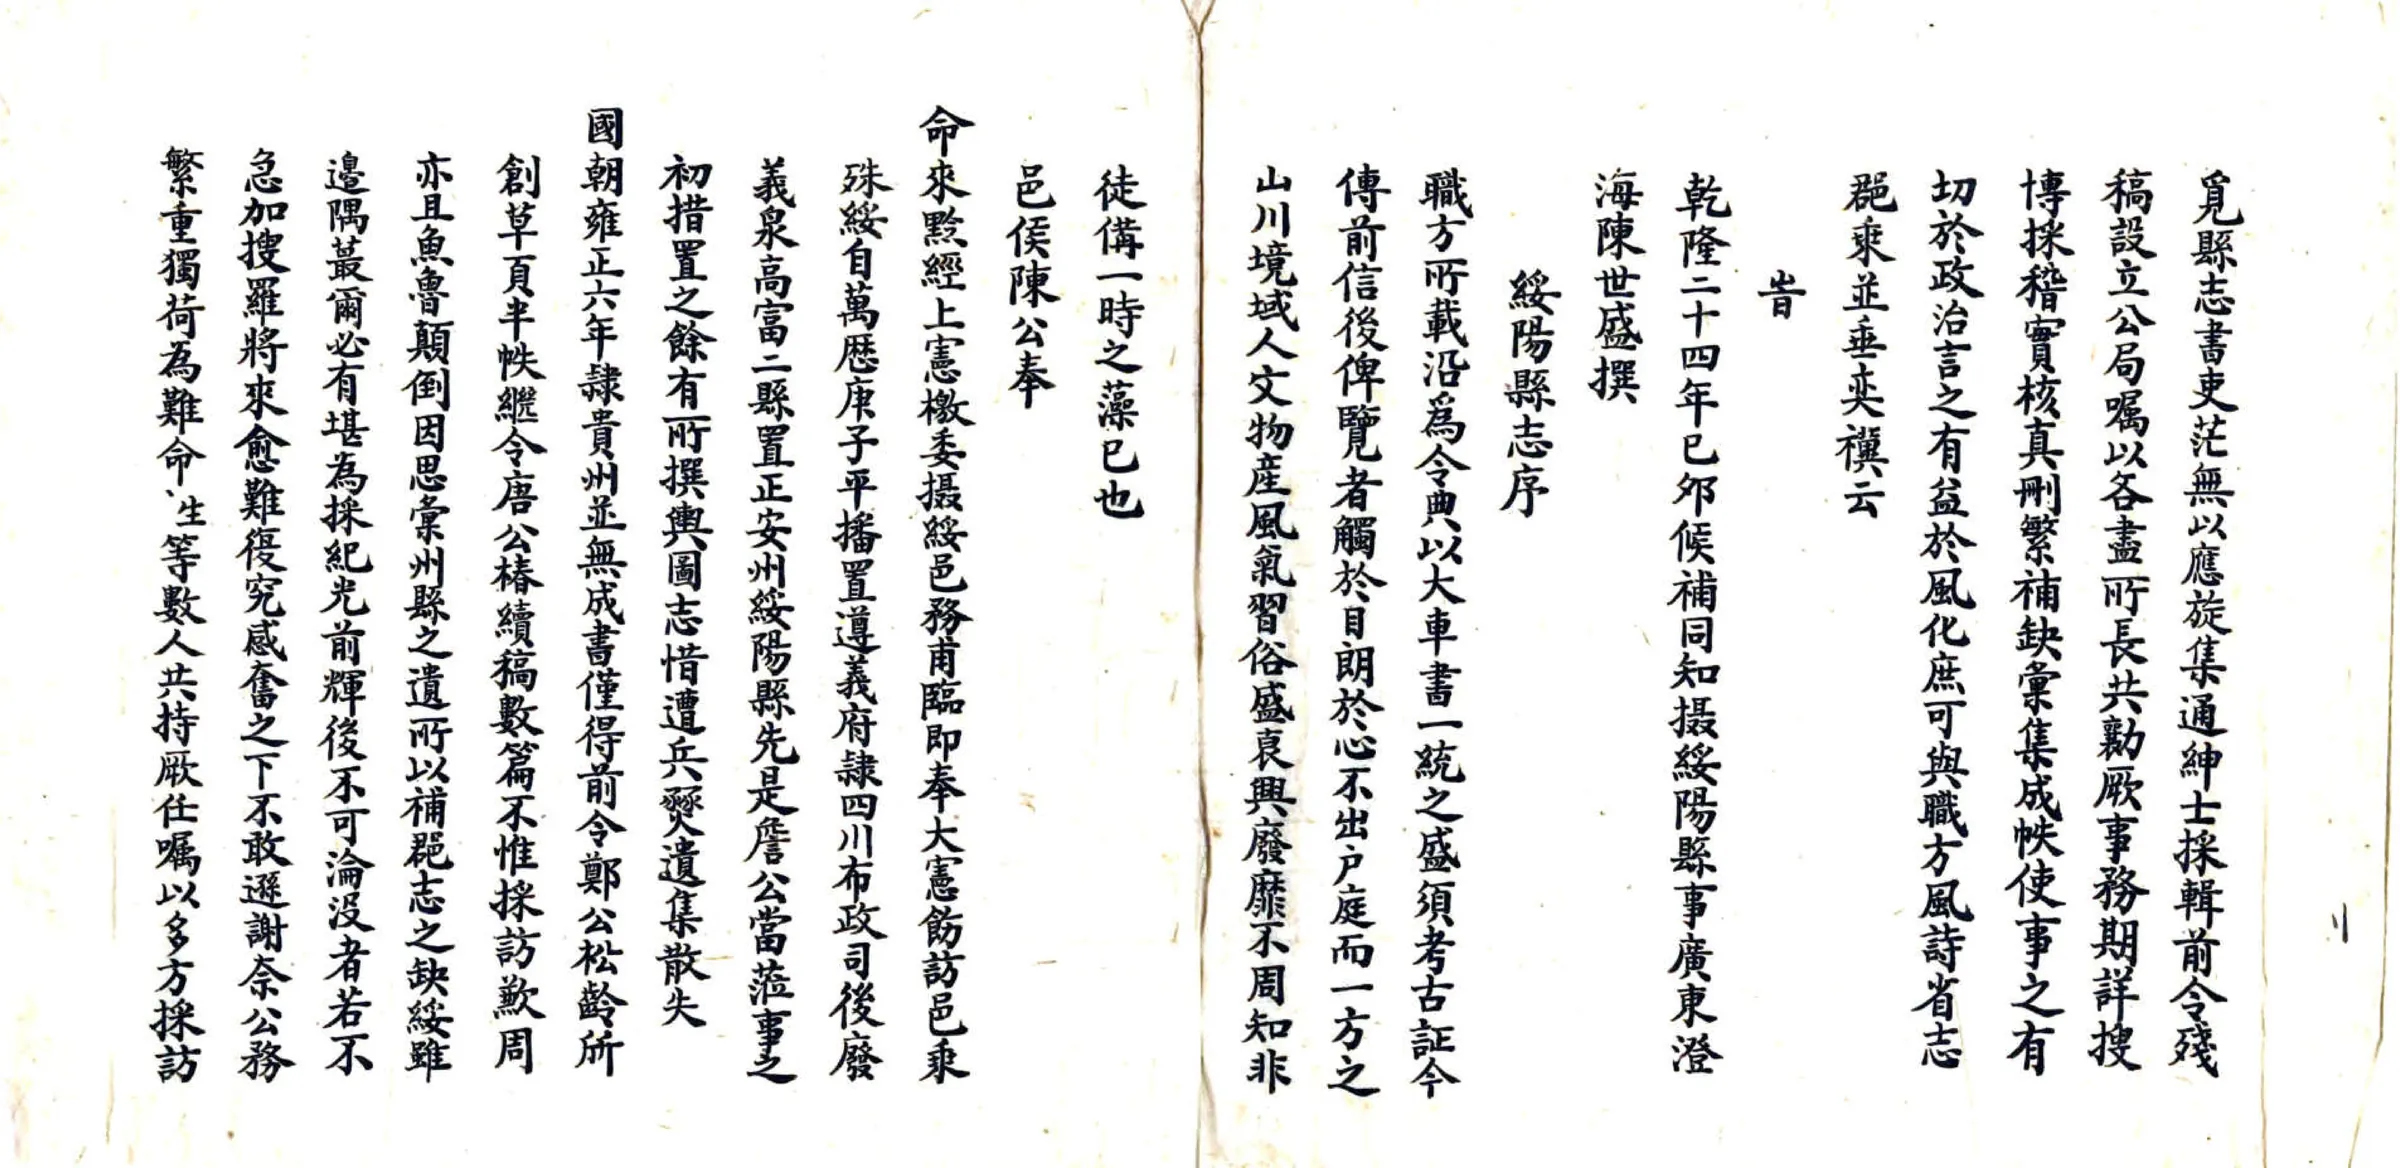 覓縣志書吏茫無以應旋集通紳士採輯前令殘
稿設立公局嘱以各盡所長共勷厥事務期詳搜
博採稽實核真刪繁補缺彙集成帙使事之有
切於政治言之有益於風化庶可與職方風詩省志
郡乘並垂奕禩云
旹
乾隆二十四年已夘候補同知摄綏陽縣事廣東澄
海陳世盛撰
綏陽縣志序
職方所載沿爲令典以大車書一統之盛須考古証今
傳前信後俾覽者觸於目朗於心不出户庭而一方之
山川境域人文物産風氣習俗盛衰興廢靡不周知非
徒備一時之藻已也
邑侯陳公奉
命來黔經上憲檄委摄綏邑務甫臨即奉大憲飭訪邑乘
殊綏自萬歷庚子平播置遵義府隷四川布政司後廢
義泉高富二縣置正安州綏陽縣先是詹公當蒞事之
初措置之餘有所撰輿圖志惜遭兵燹遺集散失
國朝雍正六年隷貴州並無成書僅得前令鄭公松齡所
創草頁半帙繼令唐公椿續稿數篇不惟採訪歉周
亦且魚魯顛倒因思彙州縣之遺所以補郡志之缺綏雖
邉隅蕞爾必有堪為採紀光前輝後不可淪没者若不
急加搜羅將來愈難復究感奮之下不敢遜謝奈公務
繁重獨荷為難命生等數人共持厥任嘱以多方採訪